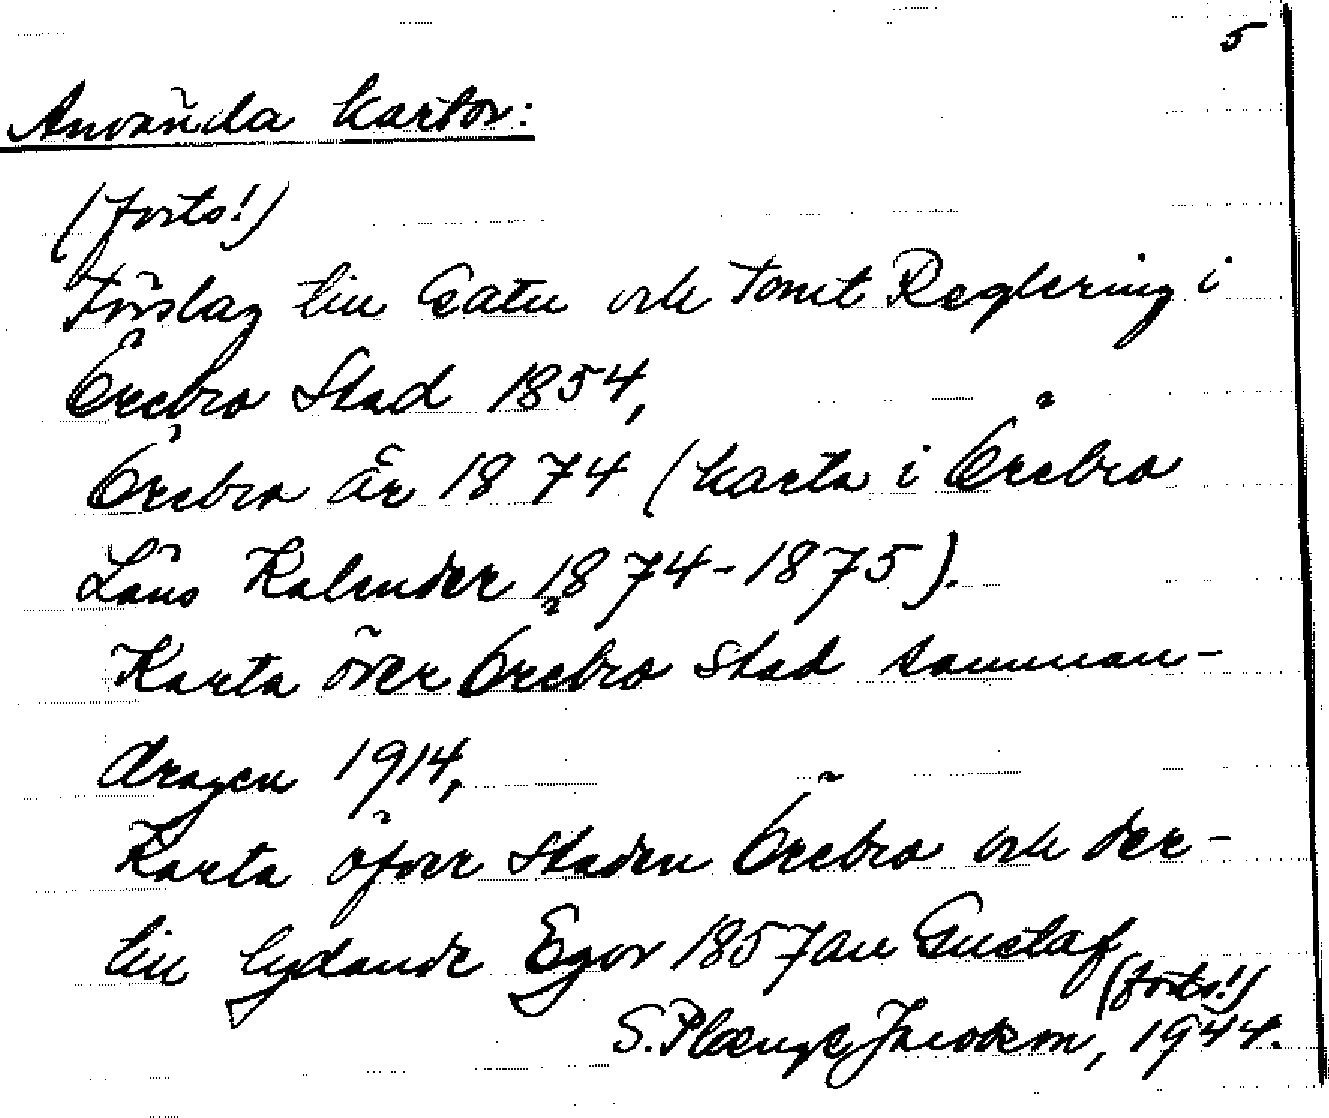 5
Använda kartor:
(forts!)
Förslag till Gatu och Tomt Reglering i
Örebro Stad 1854,
Örebro år 1874 (karta i Örebro
Läns Kalender 1874-1875).
Karta över Örebro stad samman-
dragen 1914,
Karta öfver Staden Örebro och der-
till lydande Egor 1857 au Gustaf
(forts!)
S. Plænge Jacobson, 1944.